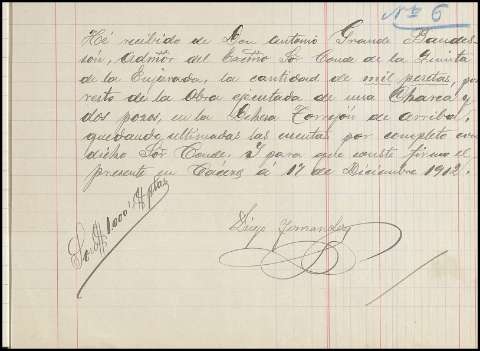 Nº 6
Hé recibido de Don Antonio Grande Baudes-
són, Admor del Excmo Sor Conde de la Quinta
de la Enjarada, la cantidad de mil pesetas, por
resto de la obra ejecutada de una Charca y
dos pozos, en la Dehesa Torrejón de arriba,
quedando ultimadas las cuentas por completo con
dicho Sor Conde. Y para que conste firmo el
presente en Cáceres á 17 de Diciembre 1912.
Son # 1.000 # ptas
Diego Fernandez